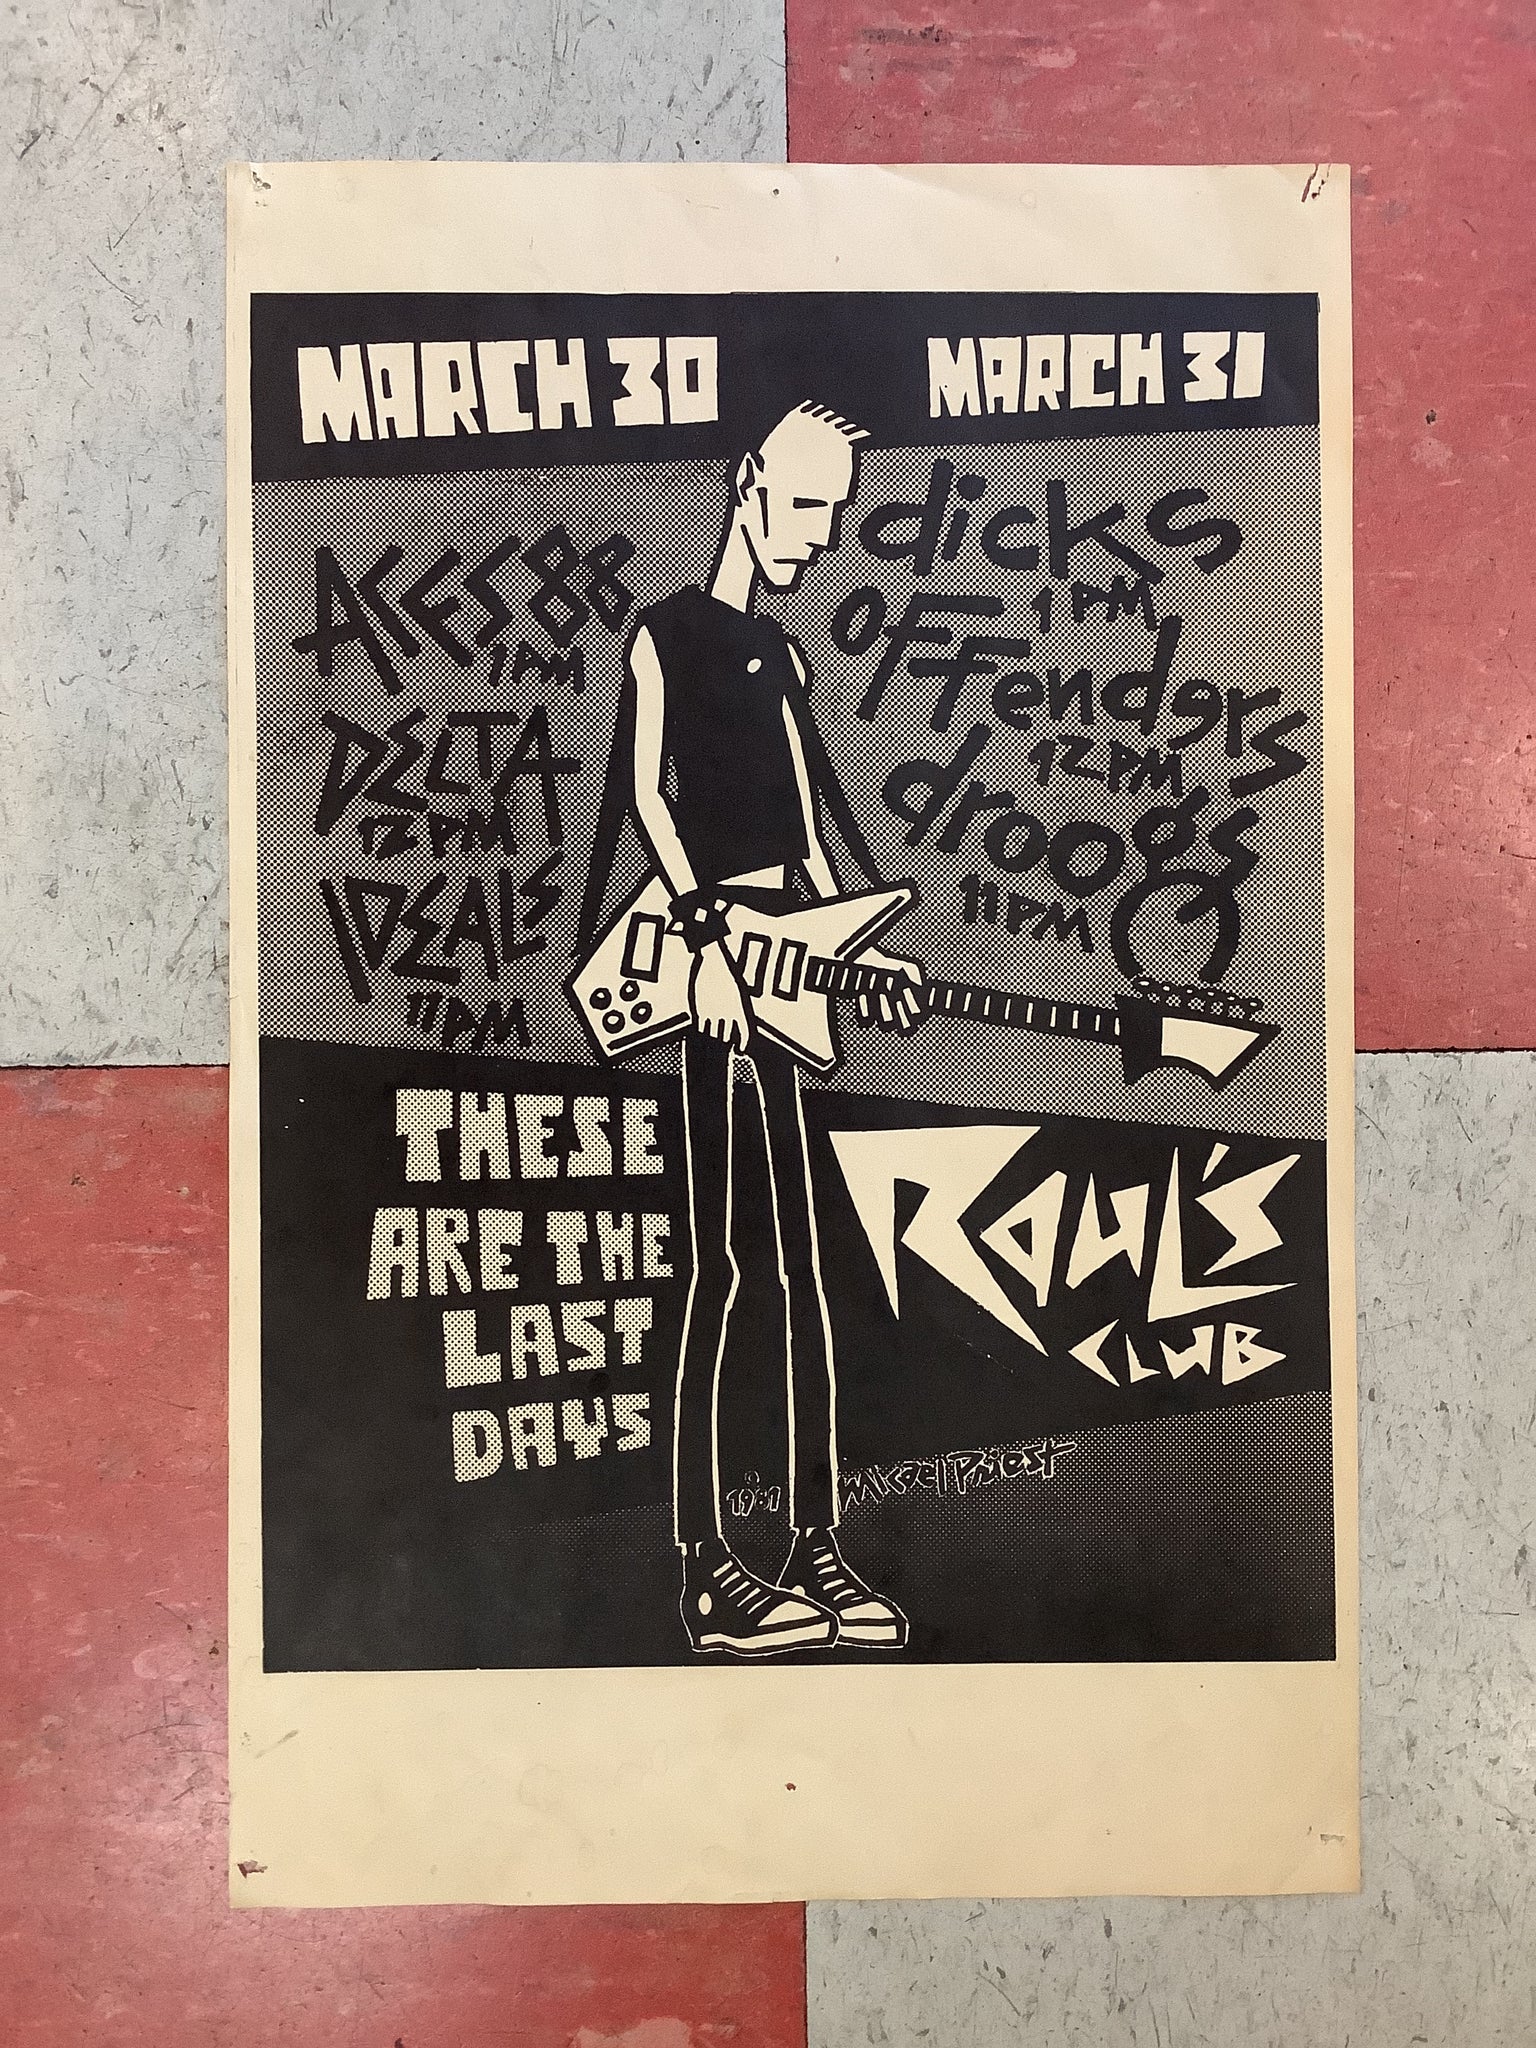 MARCH 30
ACES 88
1 PM
DELTA
12 PM
IDEALS
11 PM
MARCH 31
dicks
1 PM
OFFenders
12 PM
droogs
11 PM
THESE
ARE THE
LAST
DAYS
RAUL'S
CLUB
© 1981
Micael Priest